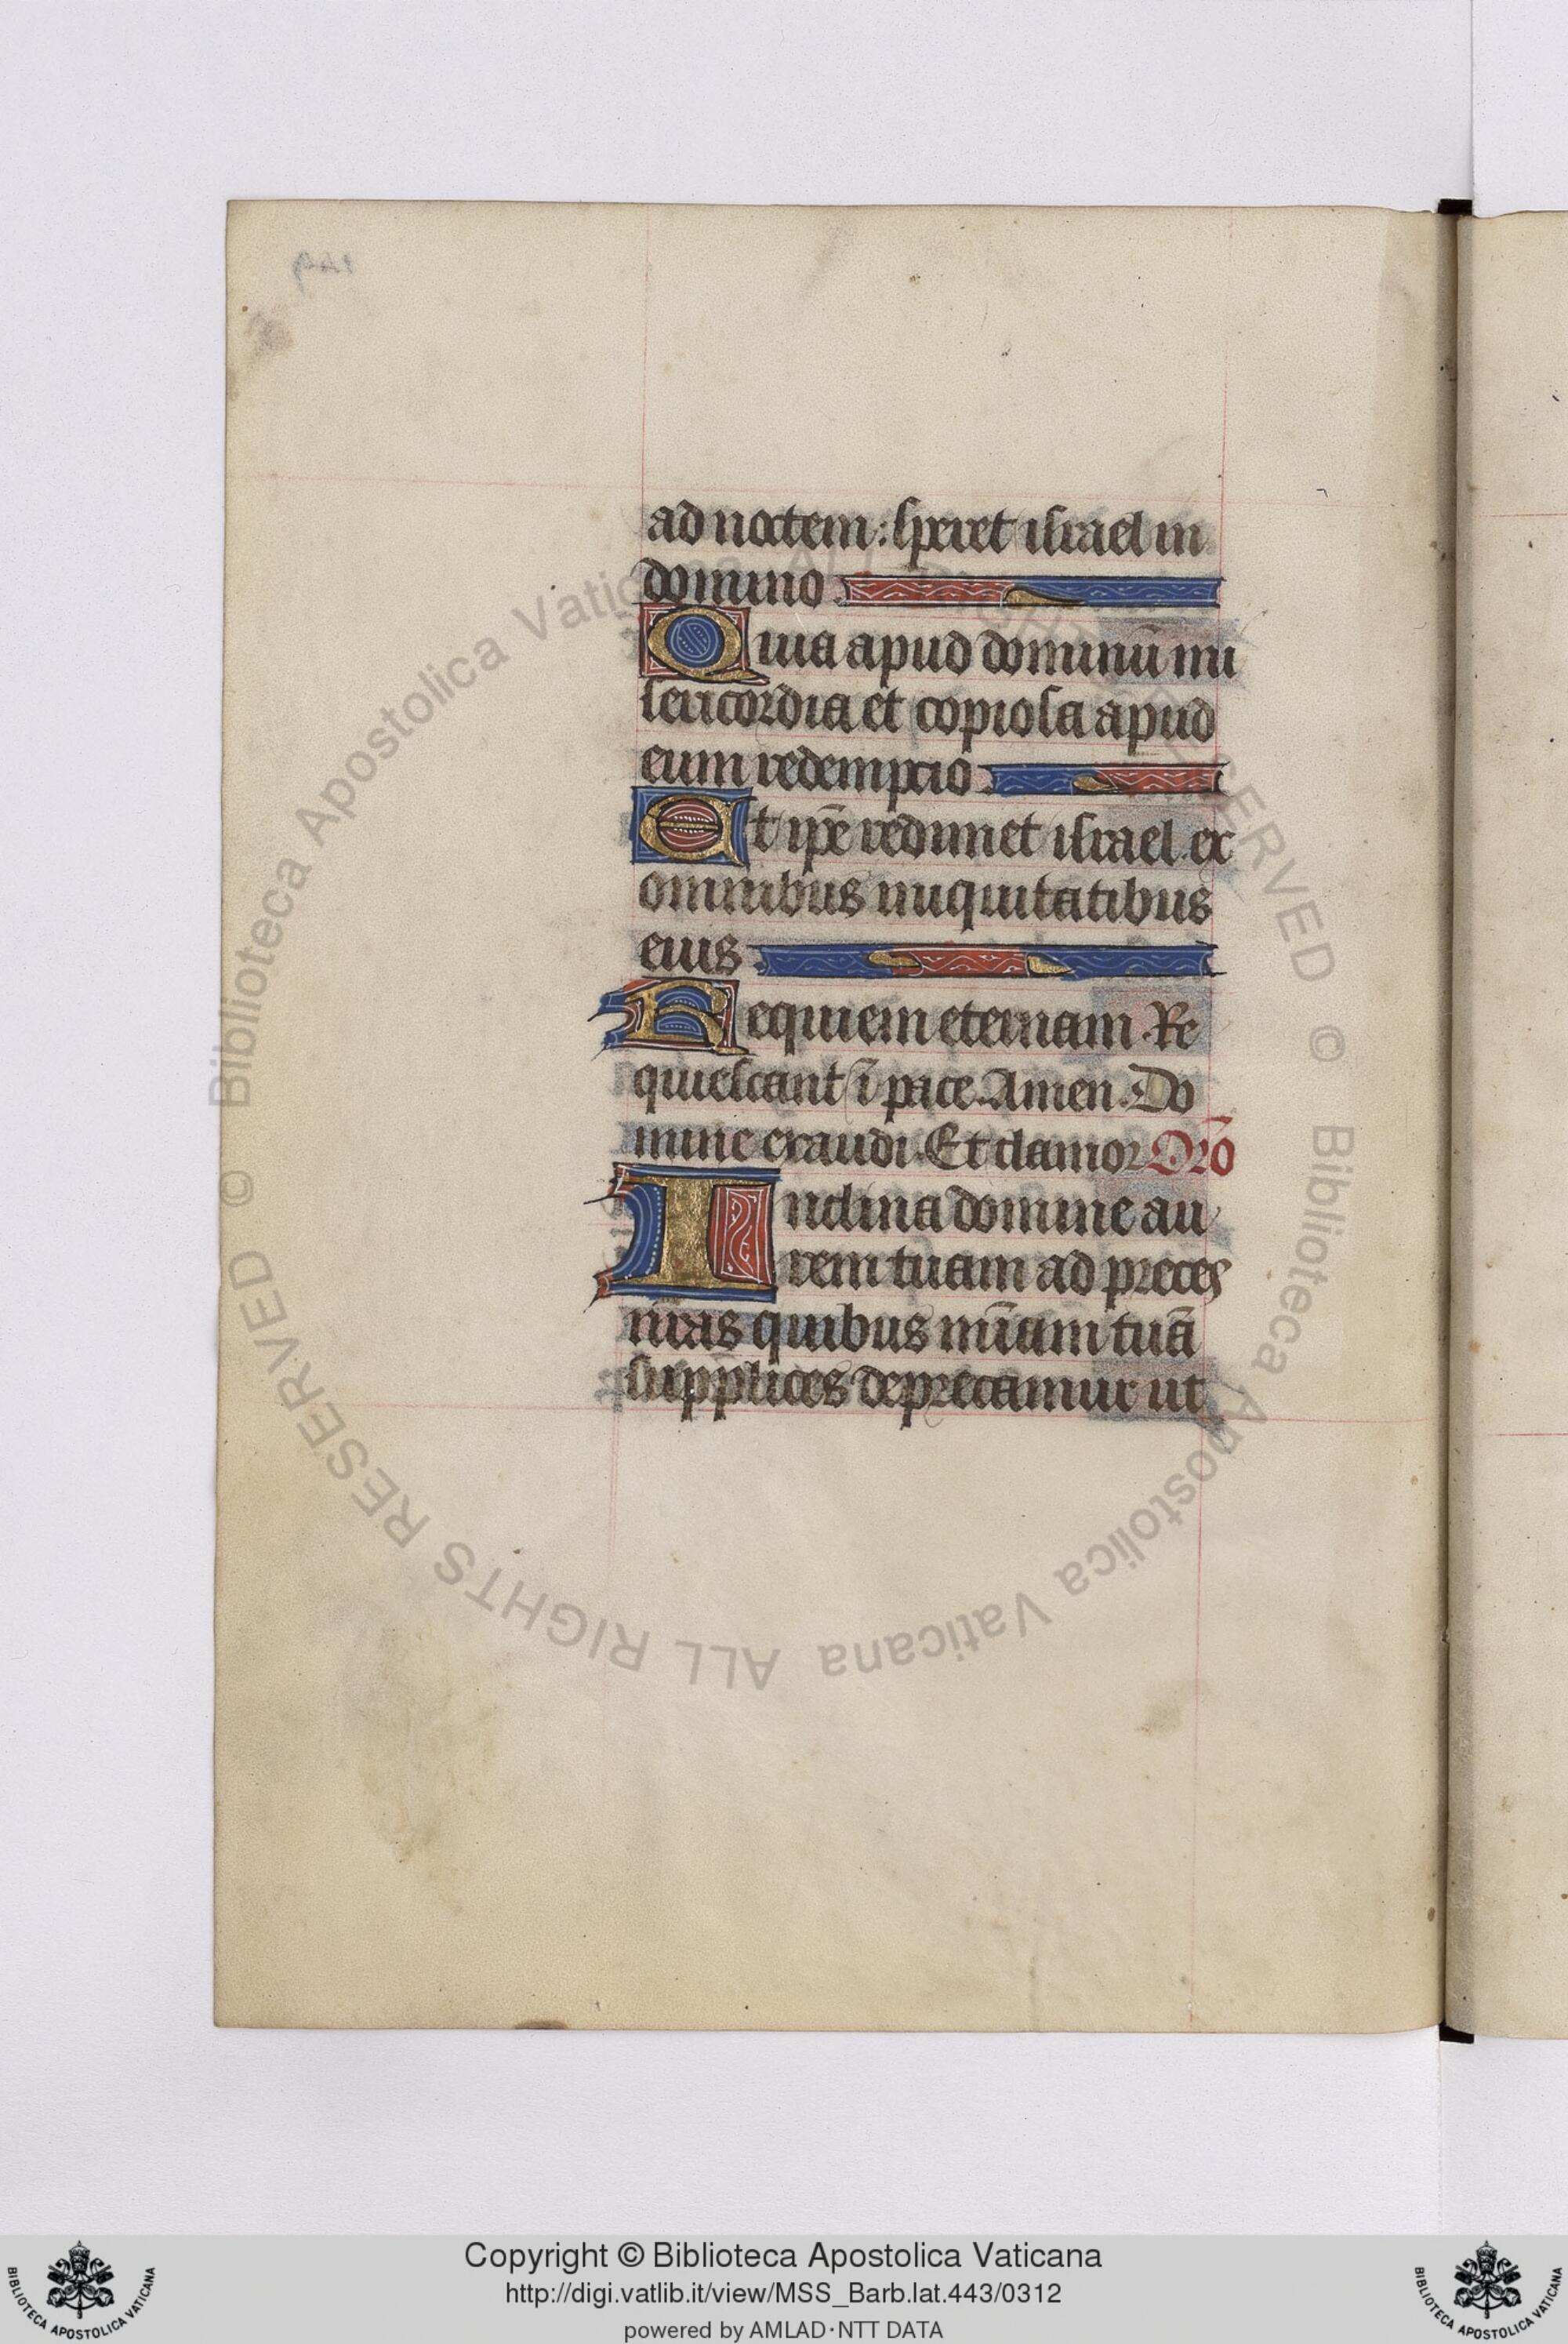 ad noctem: speret israel in
domino
Quia apud dominū mi
sericordia et copiosa apud
eum redempcio
Et ip̄e redimet israel ex
omnibus iniquitatibus
eius
Requiem eternam. Re
quiescant ī pace. Amen. Do
mine exaudi. Et clamor Or̄o
Inclina domine au
rem tuam ad preces
nr̄as quibus mīam tuā
supplices deprecamur ut
© Biblioteca Apostolica Vaticana ALL RIGHTS RESERVED © Biblioteca Apostolica Vaticana ALL RIGHTS RESERVED
Copyright © Biblioteca Apostolica Vaticana
http://digi.vatlib.it/view/MSS_Barb.lat.443/0312
powered by AMLAD·NTT DATA
BIBLIOTECA APOSTOLICA VATICANA
BIBLIOTECA APOSTOLICA VATICANA